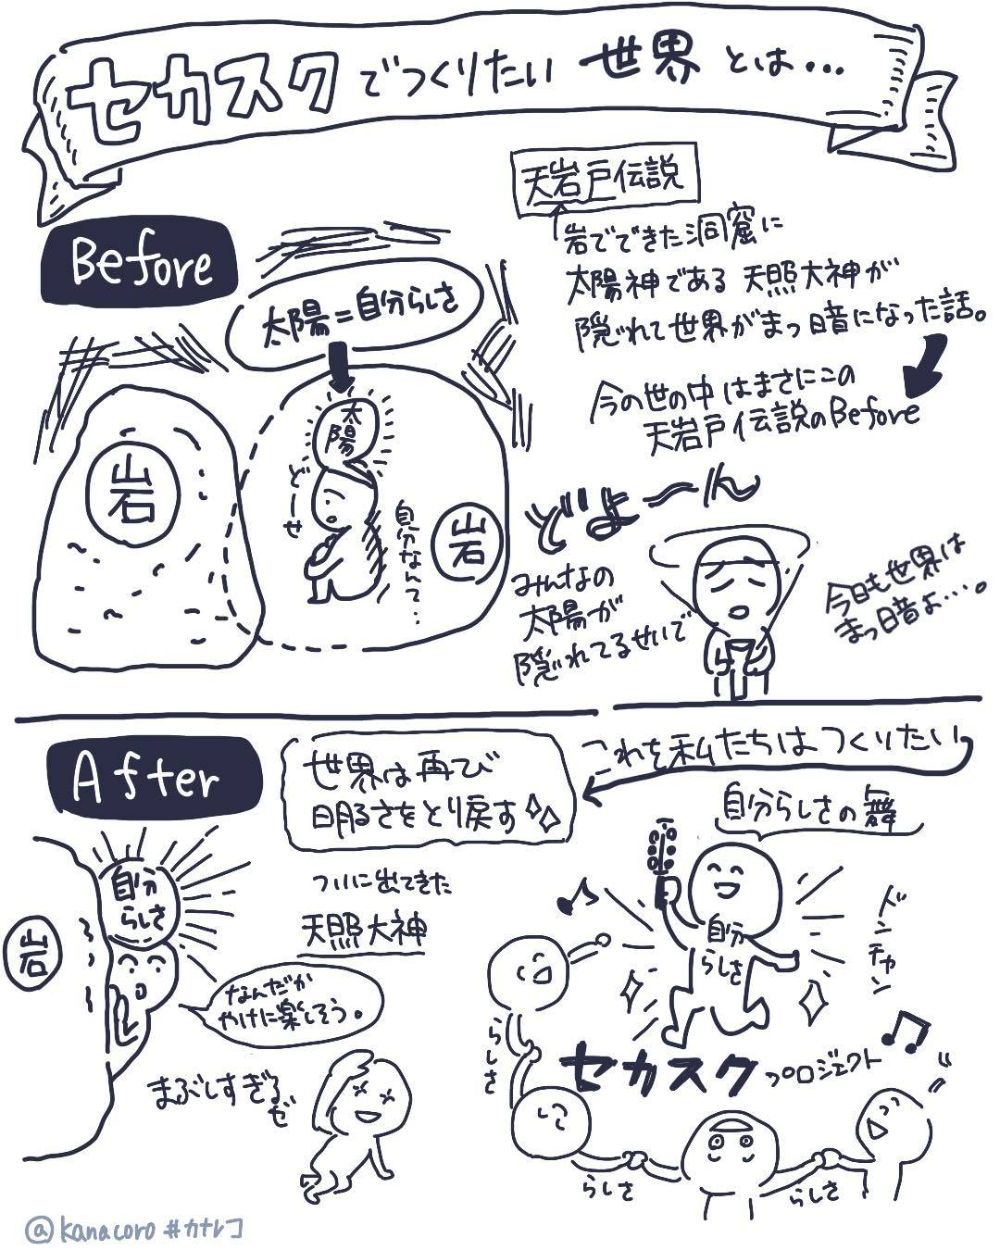 セカスクでつくりたい世界とは...
Before
天岩戸伝説
岩でできた洞窟に
太陽神である 天照大神が
隠れて世界がまっ暗になった話。
太陽=自分らしさ
今の世の中はまさにこの
天岩戸伝説のBefore
岩
太陽
どーせ
自分なんて...
岩
どよーん
みんなの
太陽が
隠れてるせいで
今日も世界は
まっ暗よ....。
After
世界は再び
明るさをとり戻す
これを私たちはつくりたい
自分らしさの舞
自分
らしさ
岩
ついに出てきた
天照大神
なんだか
やけに楽しそう。
まぶしすぎるぜ
自分
らしさ
ドンチャン
らしさ
セカスクプロジェクト
らしさ
らしさ
@kanacoro #カナレコ